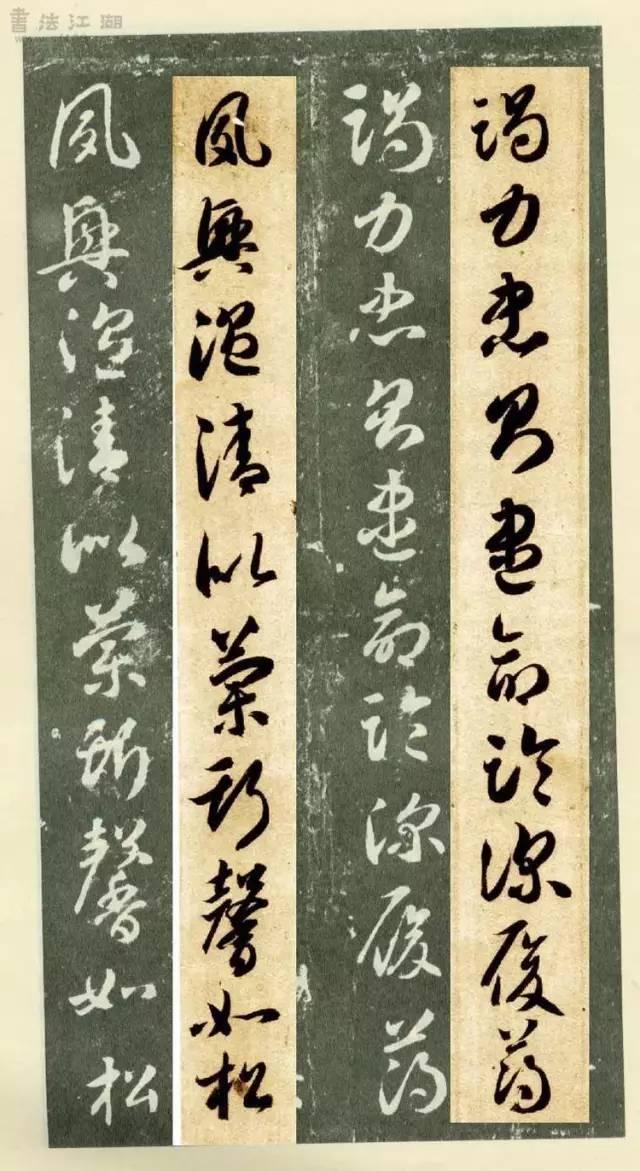 書法江湖
竭力忠則盡命臨深履薄
竭力忠則盡命臨深履薄
夙興溫清似蘭斯馨如松
夙興溫清似蘭斯馨如松